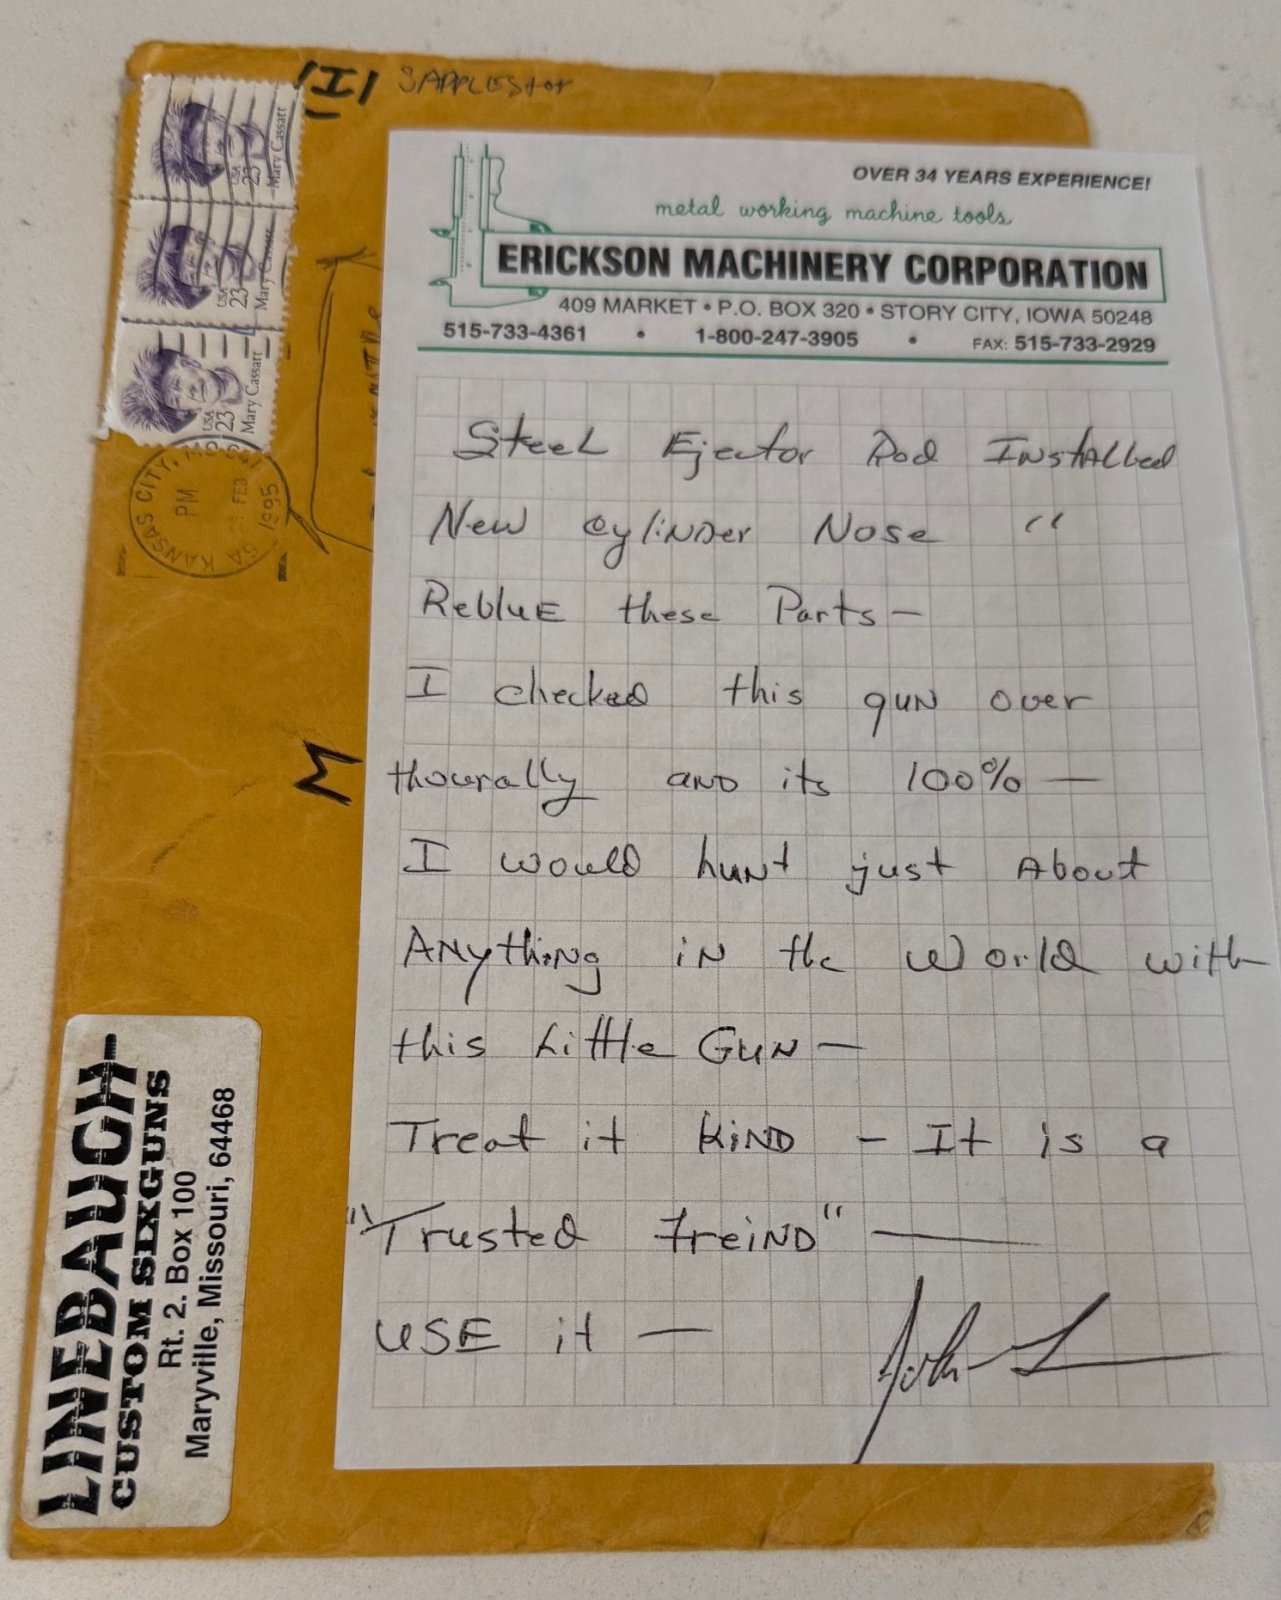 SAPPLESTOF
USA 23 Mary Cassatt
USA 23 Mary Cassatt
USA 23 Mary Cassatt
KANSAS CITY, MO
PM
FEB
1995
OVER 34 YEARS EXPERIENCE!
metal working machine tools
ERICKSON MACHINERY CORPORATION
409 MARKET • P.O. BOX 320 • STORY CITY, IOWA 50248
515-733-4361 • 1-800-247-3905 • FAX: 515-733-2929
Steel Ejector Rod Installed
New cylinder Nose "
Reblue these Parts —
I checked this gun over
thourally and its 100% —
I would hunt just About
Anything in the World with
this Little Gun —
Treat it kind - It is a
"Trusted freind" —
USE it —
John L
M
LINEBAUGH
CUSTOM SIXGUNS
Rt. 2. Box 100
Maryville, Missouri, 64468